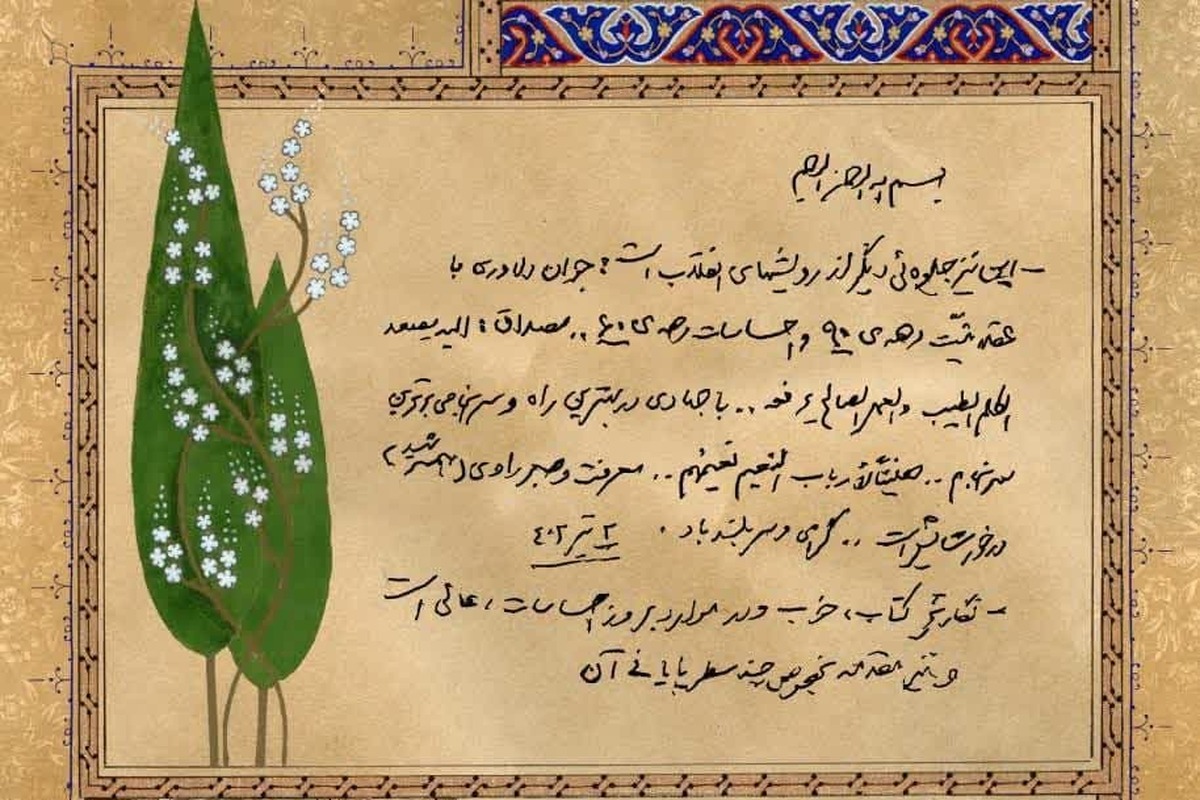 بسم الله الرحمن الرحیم
- این نیز جلوه‌ئی دیگر از رویشهای انقلاب است: جوان دلاوری با
عقلانیّت دهه‌ی ۹۰ و احساسات دهه‌ی ۶۰ .. مصداق: الیه یصعد
الکلم الطیب والعمل الصالح یرفعه .. با جهادی در بهترین راه و سرانجامی برترین
سرانجام .. هنیئاً لأرباب النعیم نعیمهم .. معرفت و صبر راوی (همسر شهید)
درخور ستایش است .. گرامی و سربلند باد .
۲ تیر ۴۰۲
- نگارش کتاب، خوب و در موارد بروز احساسات، عالی است
و نیز مقدمه بخصوص چند سطر پایانی آن